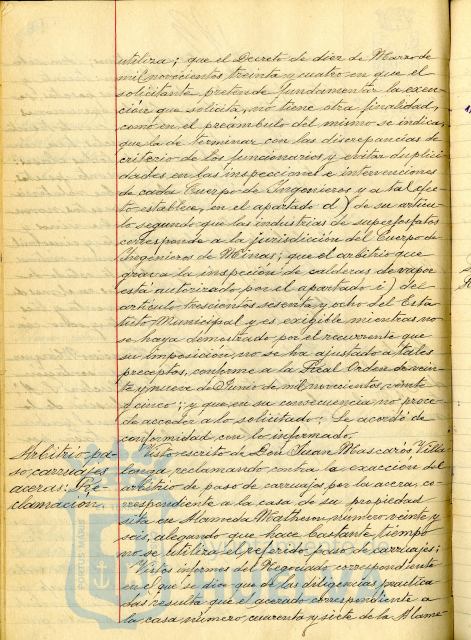 utiliza; que el Decreto de diez de Marzo de
mil novecientos treinta y cuatro en que el
solicitante pretende fundamentar la exen-
ción que solicita, no tiene otra finalidad,
como en el preámbulo del mismo se indica,
que la de terminar con las discrepancias de
criterio de los funcionarios y evitar duplici-
dades en las inspecciones e intervenciones
de cada Cuerpo de Ingenieros y a tal efec-
to establece, en el apartado d) de su articu-
lo segundo que las industrias de superfosfatos
corresponde a la jurisdicción del Cuerpo de
Ingenieros de Minas; que el arbitrio que
grava la inspección de calderas de vapor
está autorizado por el apartado i) del
articulo trescientos sesenta y ocho del Esta-
tuto Municipal y es exigible mientras no
se haya demostrado por el recurrente que
su imposición, no se ha ajustado a tales
preceptos, conforme a la Real Orden de vein-
ta y nueve de Junio de mil novecientos veinte
y cinco; y que en su consecuencia no proce-
de acceder a lo solicitado: Se acordó de
conformidad con lo informado.
Arbitrio pa-
so carruajes
aceras: Re-
clamación.
Visto escrito de Don Juan Mascarós Villa-
longa reclamando contra la exacción del
arbitrio de paso de carruajes por la acera, co-
rrespondiente a la casa de su propiedad
sita en Alameda Matheson, número veinte y
seis, alegando que hace bastante tiempo
no se utiliza el referido paso de carruajes;
Vistos informes del Negociado correspondiente
en el que se dice que de las diligencias practica-
das resulta que el acerado correspondiente a
la casa número cuarenta y siete de la Alame-
PORTUS MARIS